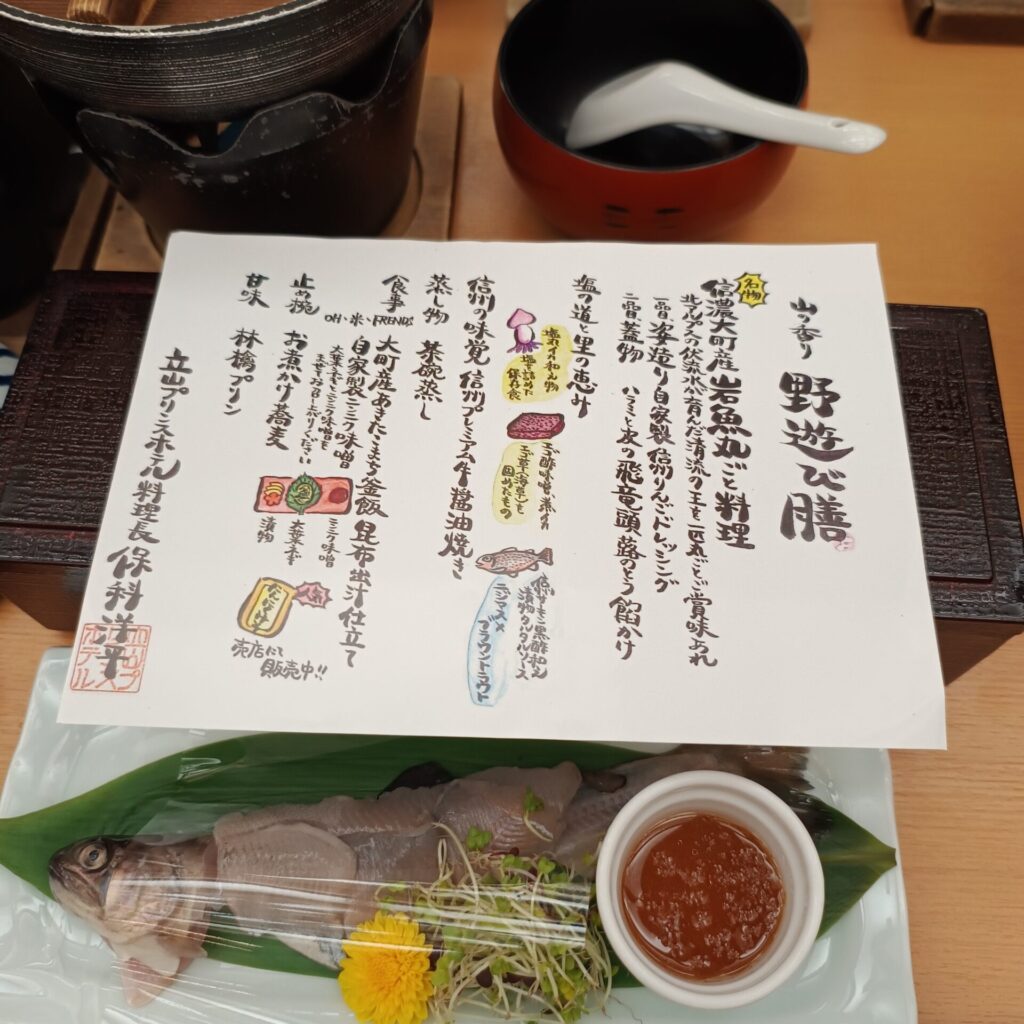 山の香り 野遊び膳
名物
信濃大町産 岩魚丸ごと料理
北アルプスの伏流水で育んだ清流の王を一匹丸ごとご賞味あれ
一皿目 姿造り 自家製 信州りんごドレッシング
二皿目 蓋物 ハラミと皮の飛竜頭 蕗のとう餡かけ
塩の道と里の恵み
塩丸イカ和え物
塩を詰めた
保存食
エゴ酢味噌
エゴ草(海草)を
固めたもの
信州サーモン黒酢和え
漬物タルタルソース
ニジマス×
ブラウントラウト
信州の味覚 信州プレミアム牛醤油焼き
蒸し物 茶碗蒸し
食事 大町産あきたこまち釜飯 昆布出汁仕立て
OH!米!FRENDS
自家製ニンニク味噌
大葉とうとニンニク味噌を
まぜてお召し上がりください
ニンニク味噌
漬物
人気
売店にて
販売中!!
止め椀 お煮かけ蕎麦
甘味 林檎プリン
立山プリンスホテル 料理長 保科洋平
立山プリンスホテル